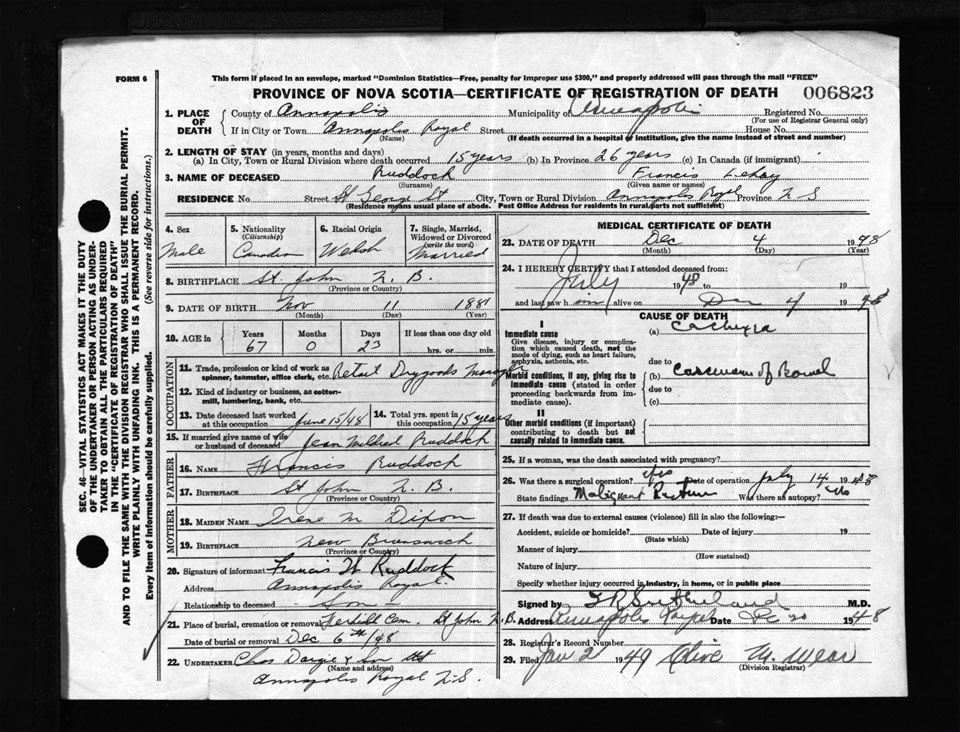 FORM 6
This form if placed in an envelope, marked "Dominion Statistics—Free, penalty for improper use $300," and properly addressed will pass through the mail "FREE"
PROVINCE OF NOVA SCOTIA—CERTIFICATE OF REGISTRATION OF DEATH 006823
1. PLACE OF DEATH
County of Annapolis Municipality of Annapolis Registered No.
(For use of Registrar General only)
If in City or Town Annapolis Royal Street House No.
(Name) (If death occurred in a hospital or institution, give the name instead of street and number)
2. LENGTH OF STAY (in years, months and days)
(a) In City, Town or Rural Division where death occurred 15 years (b) In Province 26 years (c) In Canada (if immigrant)
3. NAME OF DECEASED Ruddock Francis
(Surname) (Given name or names)
RESIDENCE No. Street St George St City, Town or Rural Division Annapolis Royal Province N S
(Residence means usual place of abode. Post Office Address for residents in rural parts not sufficient)
4. Sex
Male
5. Nationality
(Citizenship)
Canadian
6. Racial Origin
Welsh
7. Single, Married, Widowed or Divorced
(write the word)
Married
8. BIRTHPLACE St. John N. B.
(Province or Country)
9. DATE OF BIRTH Nov 11 1881
(Month) (Day) (Year)
10. AGE in Years Months Days If less than one day old
67 0 23 hrs. or min.
OCCUPATION
11. Trade, profession or kind of work as spinner, teamster, office clerk, etc. Retail Drygoods Manager
12. Kind of industry or business, as cotton-mill, lumbering, bank, etc.
13. Date deceased last worked at this occupation June 15/48
14. Total yrs. spent in this occupation 15 years
15. If married give name of wife or husband of deceased Jean Mildred Ruddock
FATHER
16. NAME Francis Ruddock
17. BIRTHPLACE St John N. B.
(Province or Country)
MOTHER
18. MAIDEN NAME Irene M Dixon
19. BIRTHPLACE New Brunswick
(Province or Country)
20. Signature of informant Francis W Ruddock
Address Annapolis Royal.
Relationship to deceased Son
21. Place of burial, cremation or removal Fernhill Cem. St John N.B.
Date of burial or removal Dec 6th/48
22. UNDERTAKER Chas Dargie & Son
(Name and address)
Annapolis Royal N.S.
MEDICAL CERTIFICATE OF DEATH
23. DATE OF DEATH Dec 4 1948
(Month) (Day) (Year)
24. I HEREBY CERTIFY that I attended deceased from:
July 1948 to 19
and last saw h im alive on Dec 4 1948
CAUSE OF DEATH
I
Immediate cause
Give disease, injury or complication which caused death, not the mode of dying, such as heart failure, asphyxia, asthenia, etc.
(a) Cachexia
due to
Morbid conditions, if any, giving rise to immediate cause (stated in order proceeding backwards from immediate cause).
(b) Carcinoma of Bowel
due to
(c)
II
Other morbid conditions (if important) contributing to death but not causally related to immediate cause.
25. If a woman, was the death associated with pregnancy?
26. Was there a surgical operation? yes Date of operation July 14 1948
State findings Malignant Rectum Was there an autopsy? No
27. If death was due to external causes (violence) fill in also the following:—
Accident, suicide or homicide? Date of injury 19
(State which)
Manner of injury
(How sustained)
Nature of injury
Specify whether injury occurred in industry, in home, or in public place
Signed by Sutherland M.D.
Address Annapolis Royal Date Dec 20 1948
28. Registrar's Record Number
29. Filed Jan 2 1949 Olive M. Wear
(Division Registrar)
SEC. 46—VITAL STATISTICS ACT MAKES IT THE DUTY
OF THE UNDERTAKER OR PERSON ACTING AS UNDER-
TAKER TO OBTAIN ALL THE PARTICULARS REQUIRED
IN THE "CERTIFICATE OF REGISTRATION OF DEATH"
AND TO FILE THE SAME WITH THE DIVISION REGISTRAR WHO SHALL ISSUE THE BURIAL PERMIT.
WRITE PLAINLY WITH UNFADING INK. THIS IS A PERMANENT RECORD.
Every item of information should be carefully supplied. (See reverse side for instructions.)